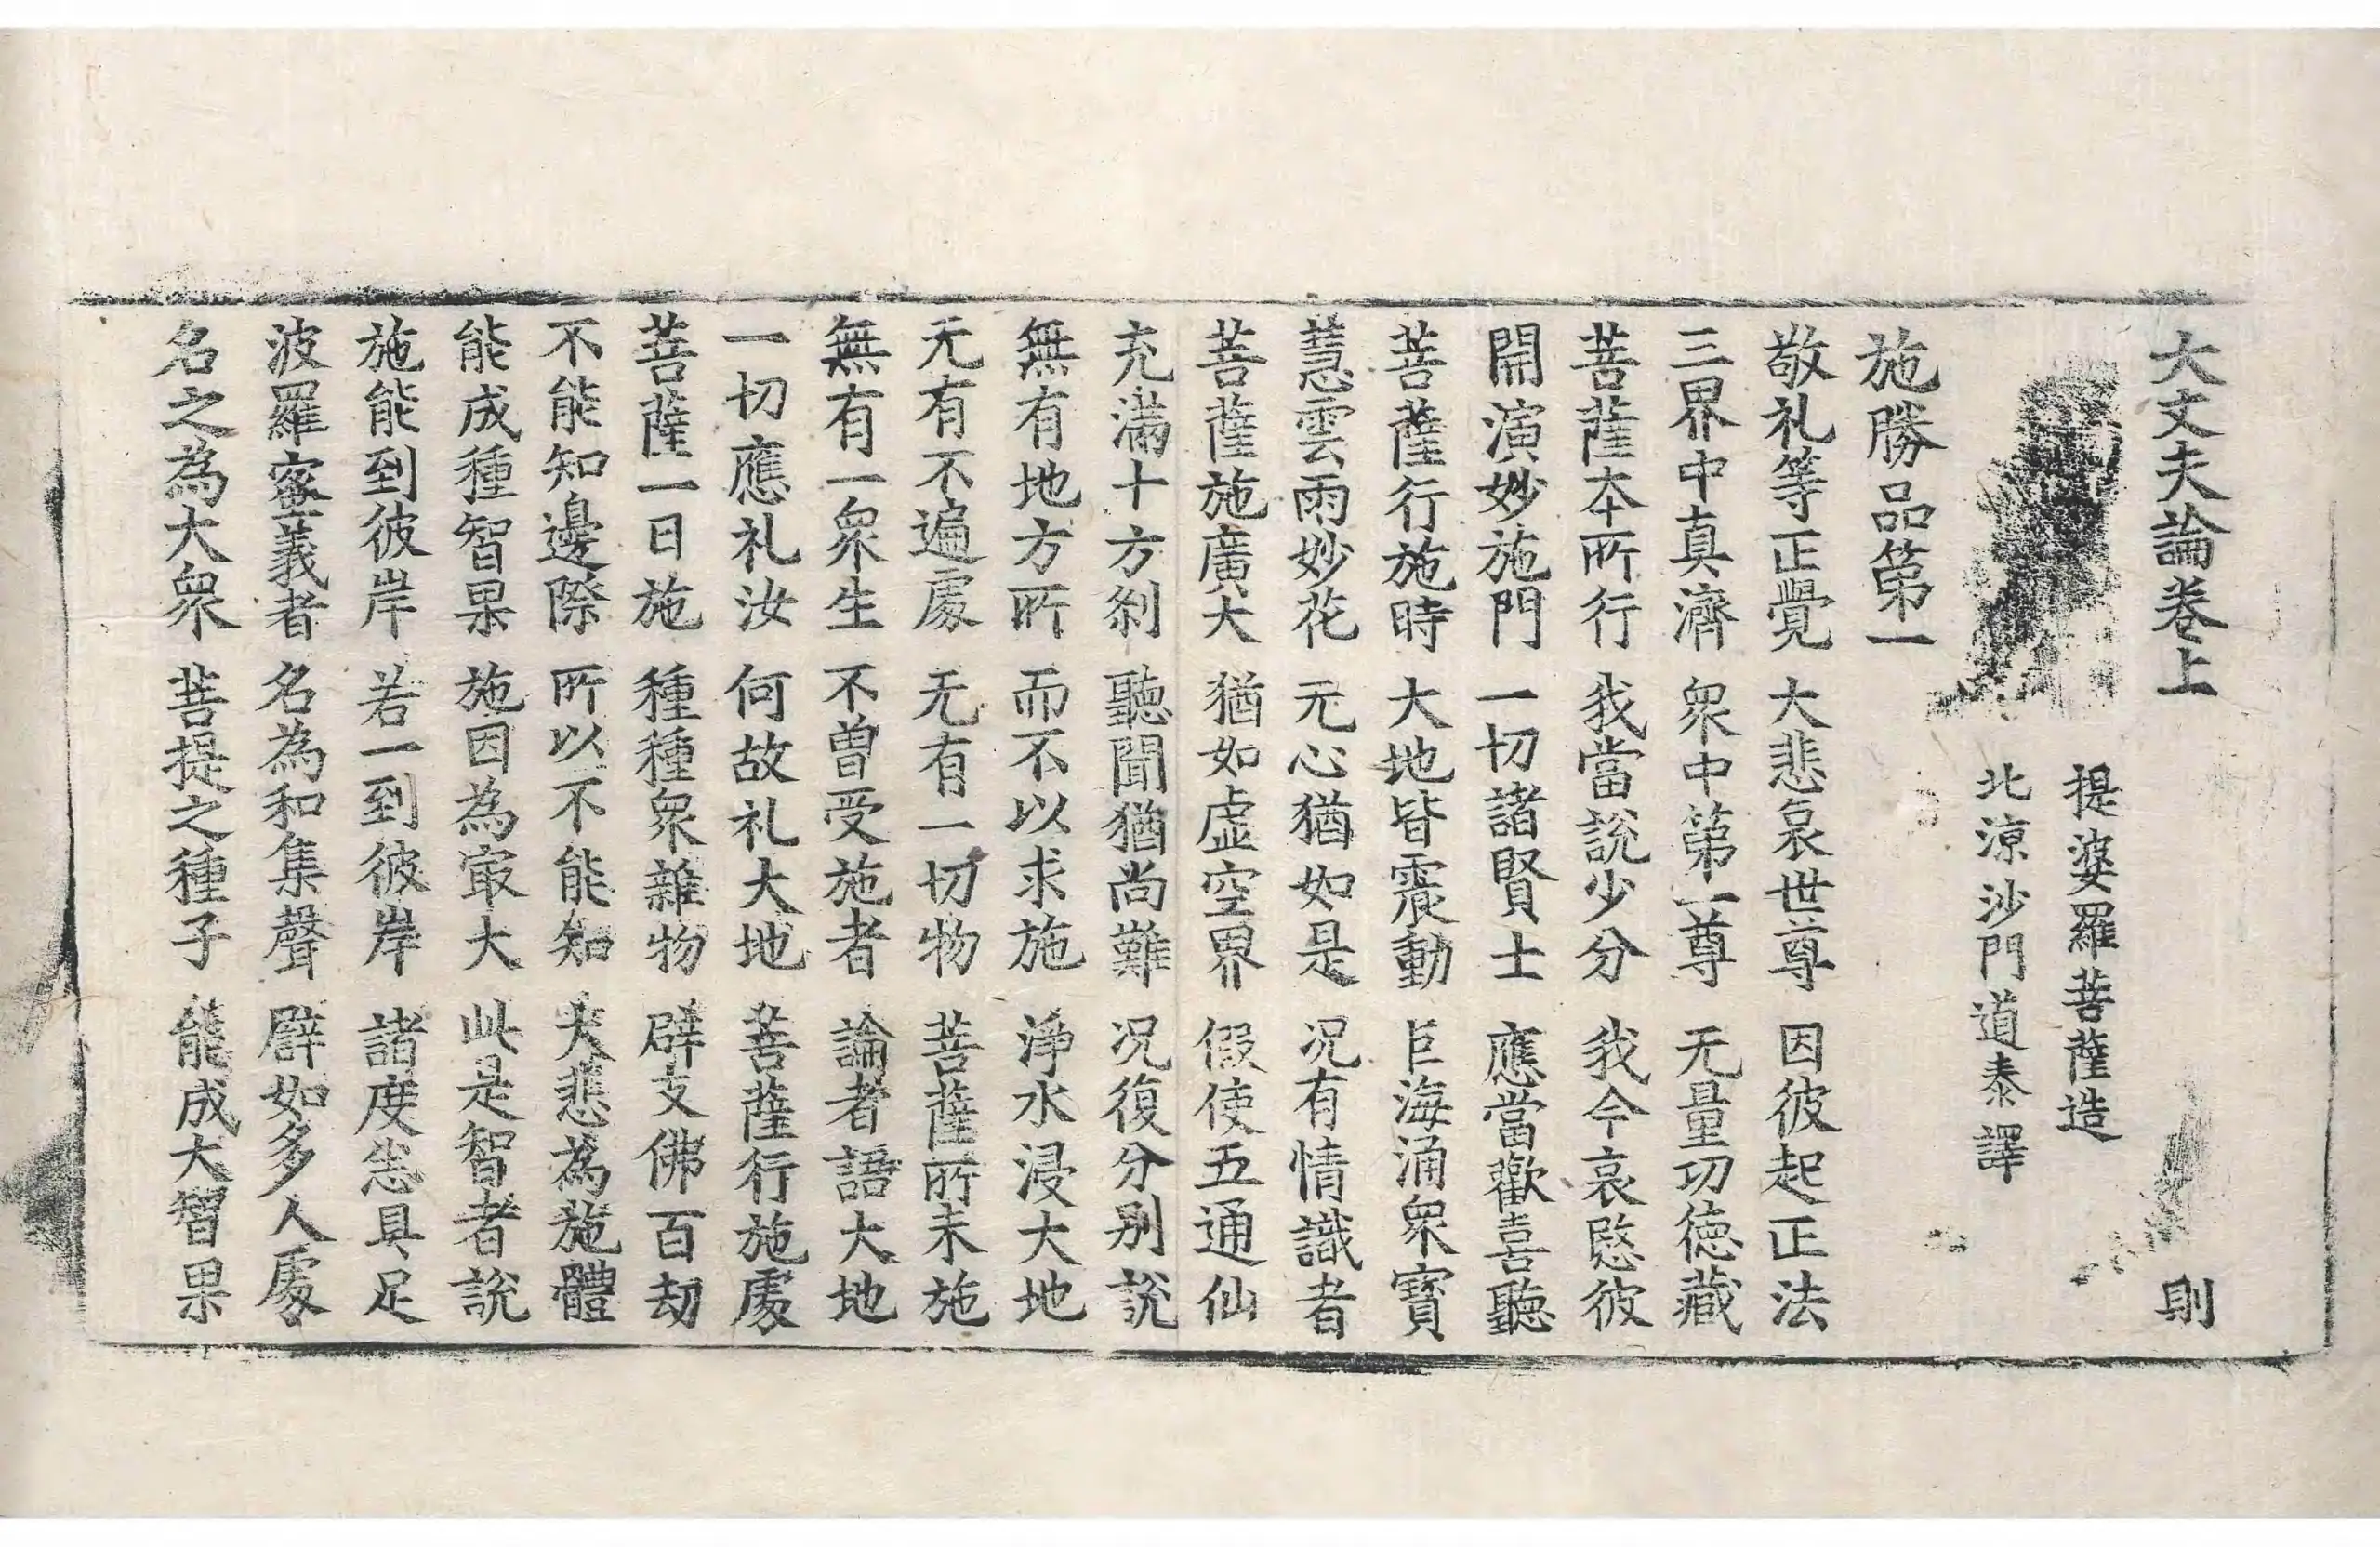 大丈夫論卷上 則
提婆羅菩薩造
北涼沙門道泰譯
施勝品第一
敬礼等正覺 大悲哀世尊 因彼起正法
三界中真濟 衆中第一尊 无量功徳藏
菩薩本所行 我當說少分 我今哀愍彼
開演妙施門 一切諸賢士 應當歡喜聽
菩薩行施時 大地皆震動 巨海涌衆寶
慧雲雨妙花 无心猶如是 况有情識者
菩薩施廣大 猶如虛空界 假使五通仙
充滿十方刹 聽聞猶尚難 况復分別說
無有地方所 而不以求施 淨水浸大地
无有不遍處 无有一切物 菩薩所未施
無有一衆生 不曾受施者 論者語大地
一切應礼汝 何故礼大地 菩薩行施處
菩薩一日施 種種衆雜物 辟支佛百劫
不能知邊際 所以不能知 大悲為施體
能成種智果 施因為㝡大 此是智者說
施能到彼岸 若一到彼岸 諸度尽具足
波羅蜜義者 名為和集聲 譬如多人處
名之為大衆 菩提之種子 能成大智果